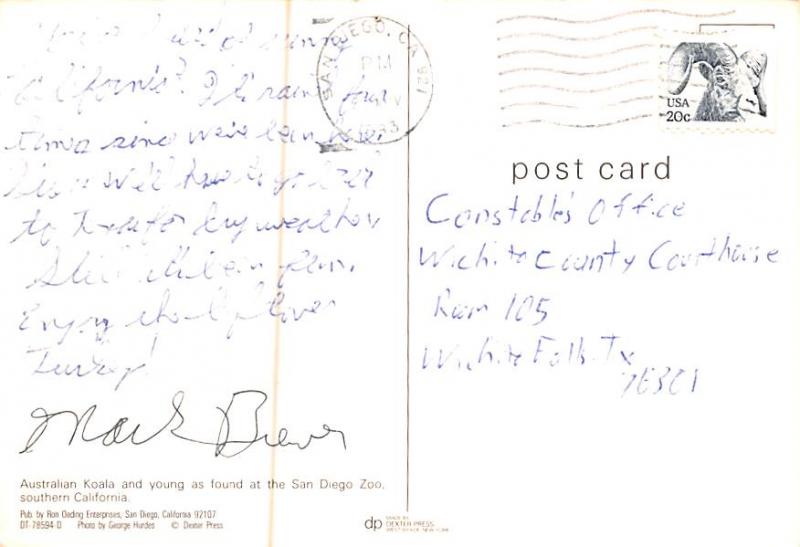 of sunny
California? It's rained four
times since we've been here.
have to go
to for dry weather
Still it's been fun.
Enjoy the leftover
Turkey!
Mark Brewer
Australian Koala and young as found at the San Diego Zoo,
southern California.
Pub. by Ron Oeding Enterprises, San Diego, California 92107
DT-78594-D Photo by George Hurdes © Dexter Press
SAN DIEGO, CA
PM
1983
USA
20c
post card
Constable's Office
Wichita County Courthouse
Room 105
Wichita Falls, Tx
76301
dp MADE BY
DEXTER PRESS
WEST NYACK, NEW YORK